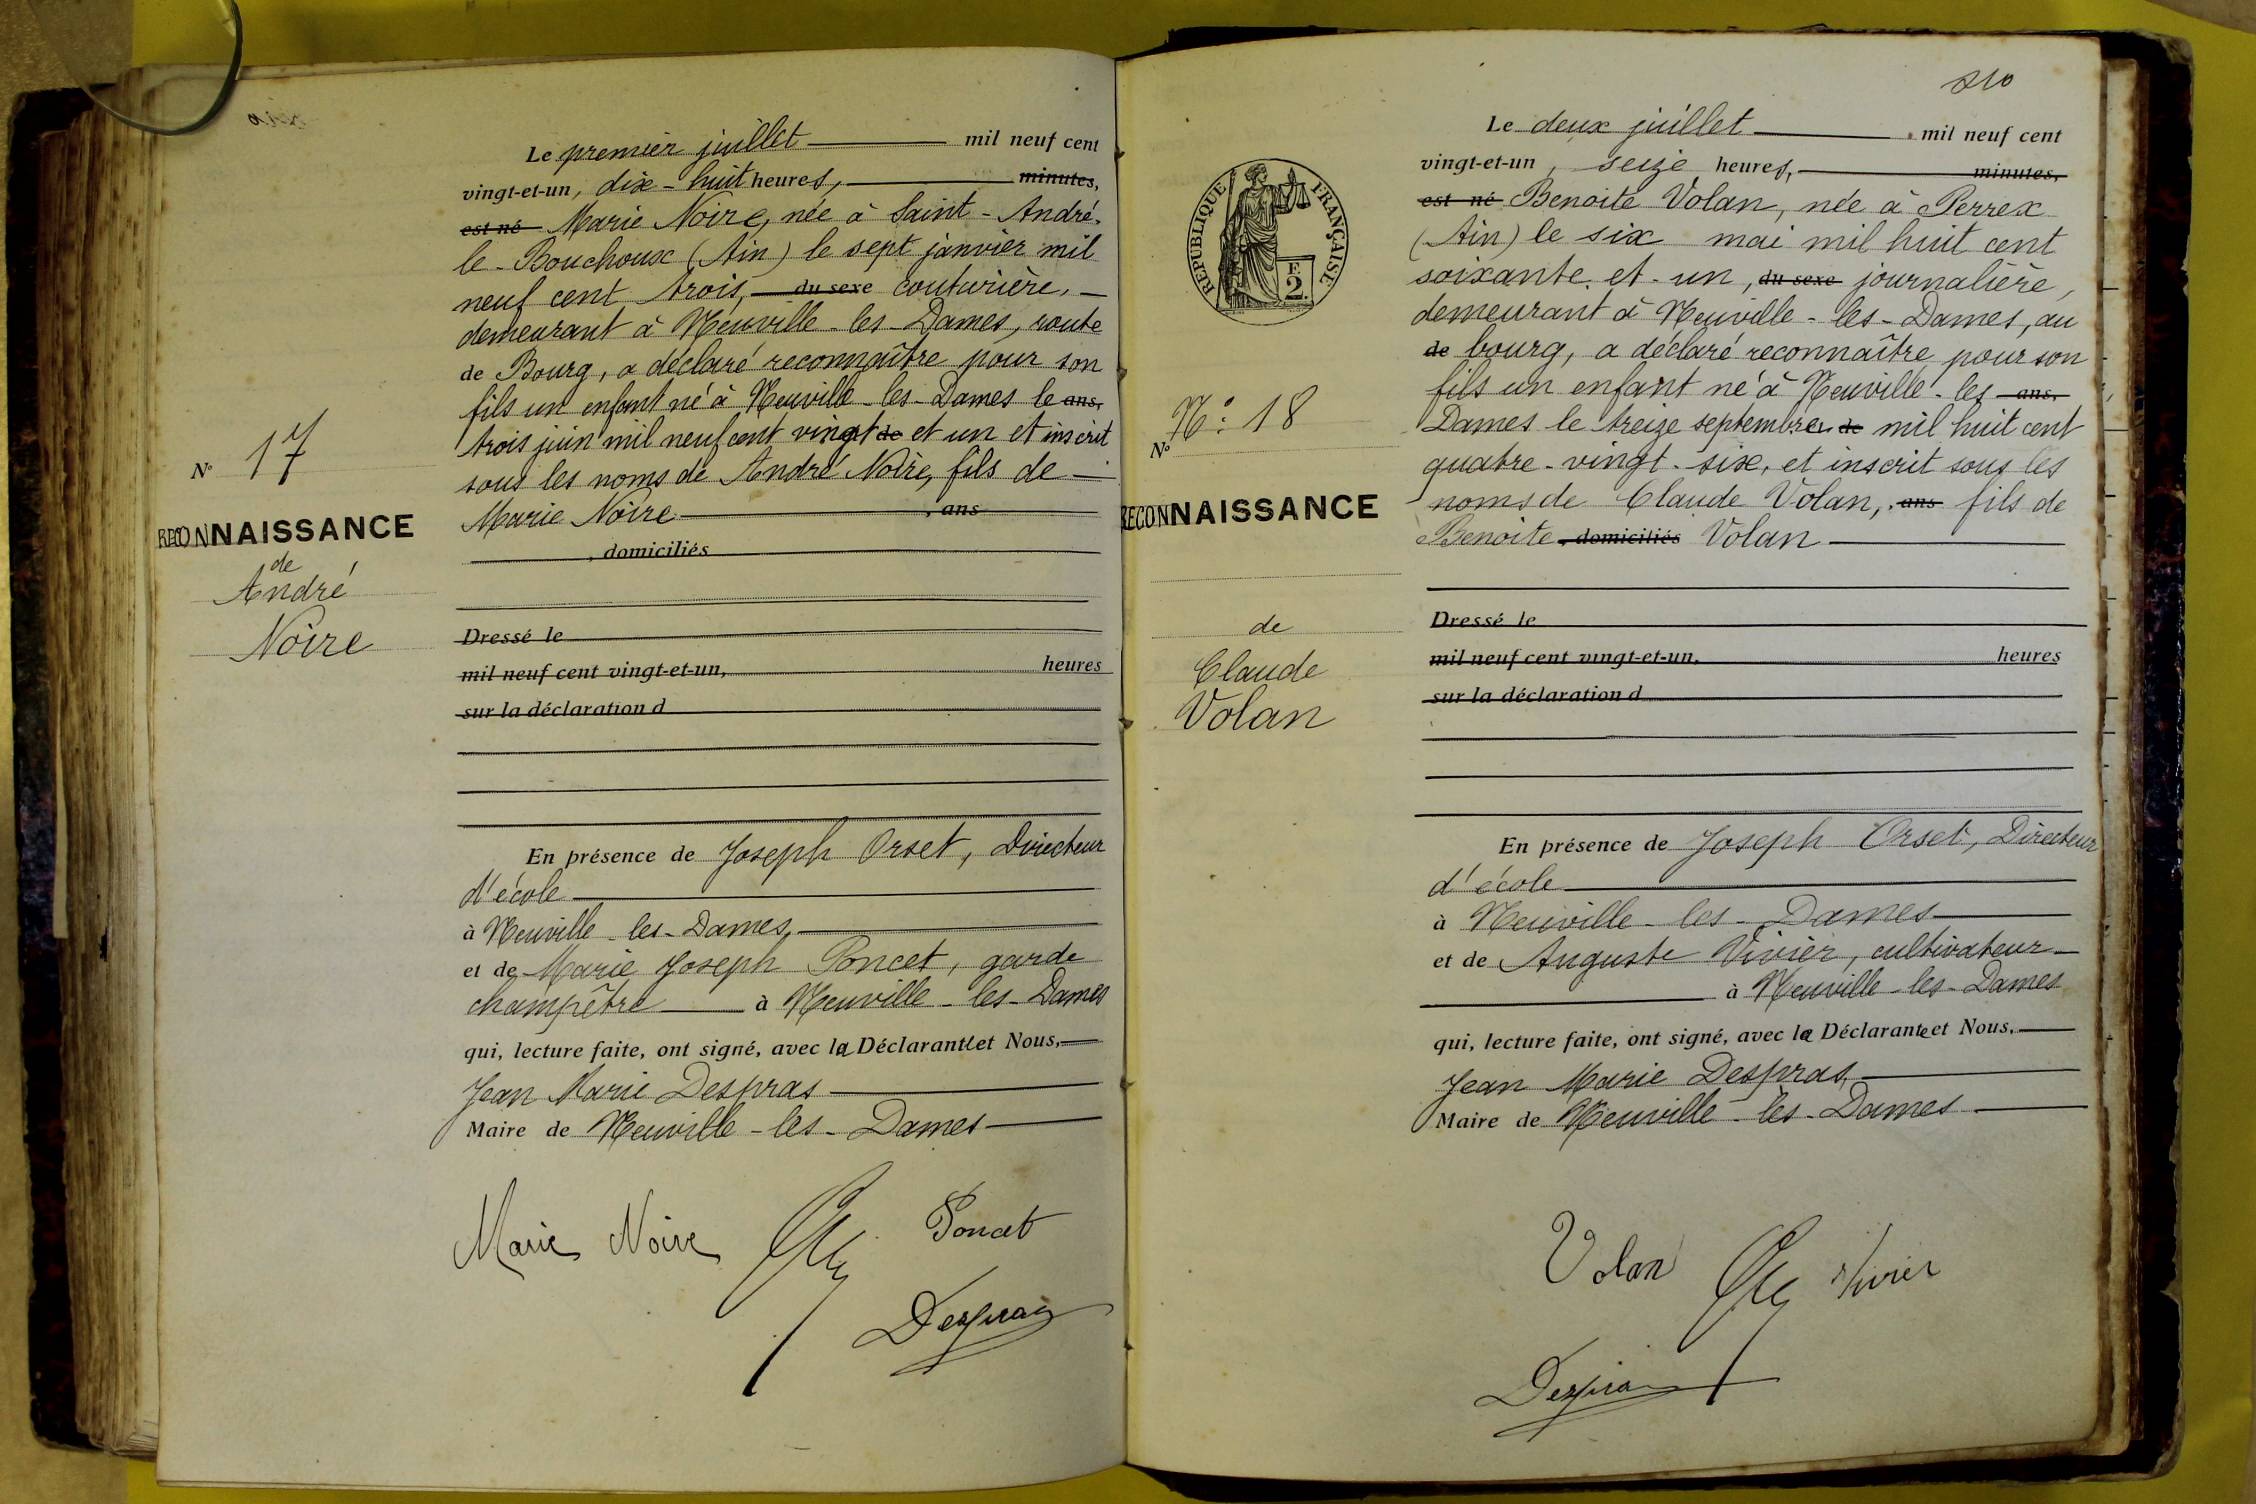 Le premier juillet mil neuf cent
vingt-et-un, dix-huit heures, minutes,
est né Marie Noire, née à Saint-André-
le-Bouchoux (Ain) le sept janvier mil
neuf cent trois, du sexe couturière,
demeurant à Neuville-les-Dames, route
de Bourg, a déclaré reconnaître pour son
fils un enfant né à Neuville-les-Dames le ans,
trois juin mil neuf cent vingt de et un et inscrit
sous les noms de André Noire, fils de
Marie Noire , ans
, domiciliés
N° 17
RECONNAISSANCE
de
André
Noire
Dressé le
mil neuf cent vingt-et-un, heures
sur la déclaration d
En présence de Joseph Orset, Directeur
d'école
à Neuville-les-Dames,
et de Marie Joseph Poncet, garde
champêtre à Neuville-les-Dames
qui, lecture faite, ont signé, avec la Déclarante et Nous,
Jean Marie Despras
Maire de Neuville-les-Dames
Marie Noire Poncet
Despras
210
RÉPUBLIQUE FRANÇAISE
F.
2.
Le deux juillet mil neuf cent
vingt-et-un, seize heures, minutes,
est né Benoite Volan, née à Perrex
(Ain) le six mai mil huit cent
soixante-et-un, du sexe journalière,
demeurant à Neuville-les-Dames, au
de bourg, a déclaré reconnaître pour son
fils un enfant né à Neuville-les- ans,
Dames le treize septembre de mil huit cent
quatre-vingt-six, et inscrit sous les
noms de Claude Volan, ans fils de
Benoite , domiciliés Volan
N°: 18
N°
RECONNAISSANCE
de
Claude
Volan
Dressé le
mil neuf cent vingt-et-un, heures
sur la déclaration d
En présence de Joseph Orset, Directeur
d'école
à Neuville-les-Dames
et de Auguste Vivier, cultivateur
à Neuville-les-Dames
qui, lecture faite, ont signé, avec la Déclarante et Nous,
Jean Marie Despras,
Maire de Neuville-les-Dames
Volan Vivier
Despras